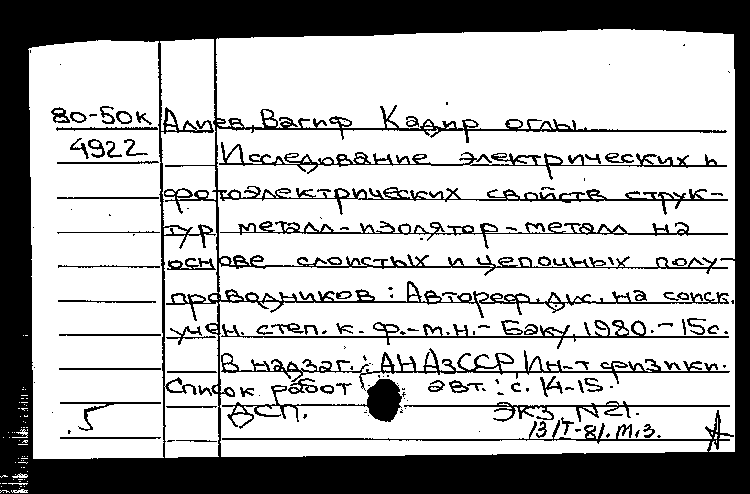 80-50к Алиев, Вагиф Кадир оглы.
4922 Исследование электрических и
фотоэлектрических свойств струк-
тур металл-изолятор-металл на
основе слоистых и цепочных полу-
проводников : Автореф. дис. на соиск.
учен. степ. к. ф.-м.н.- Баку, 1980.- 15с.
В надзаг.: АН АзССР, Ин-т физики.
Список работ авт.: с. 14-15.
.5 ДСП. ЭКЗ. N21.
13/I-81. т.з.